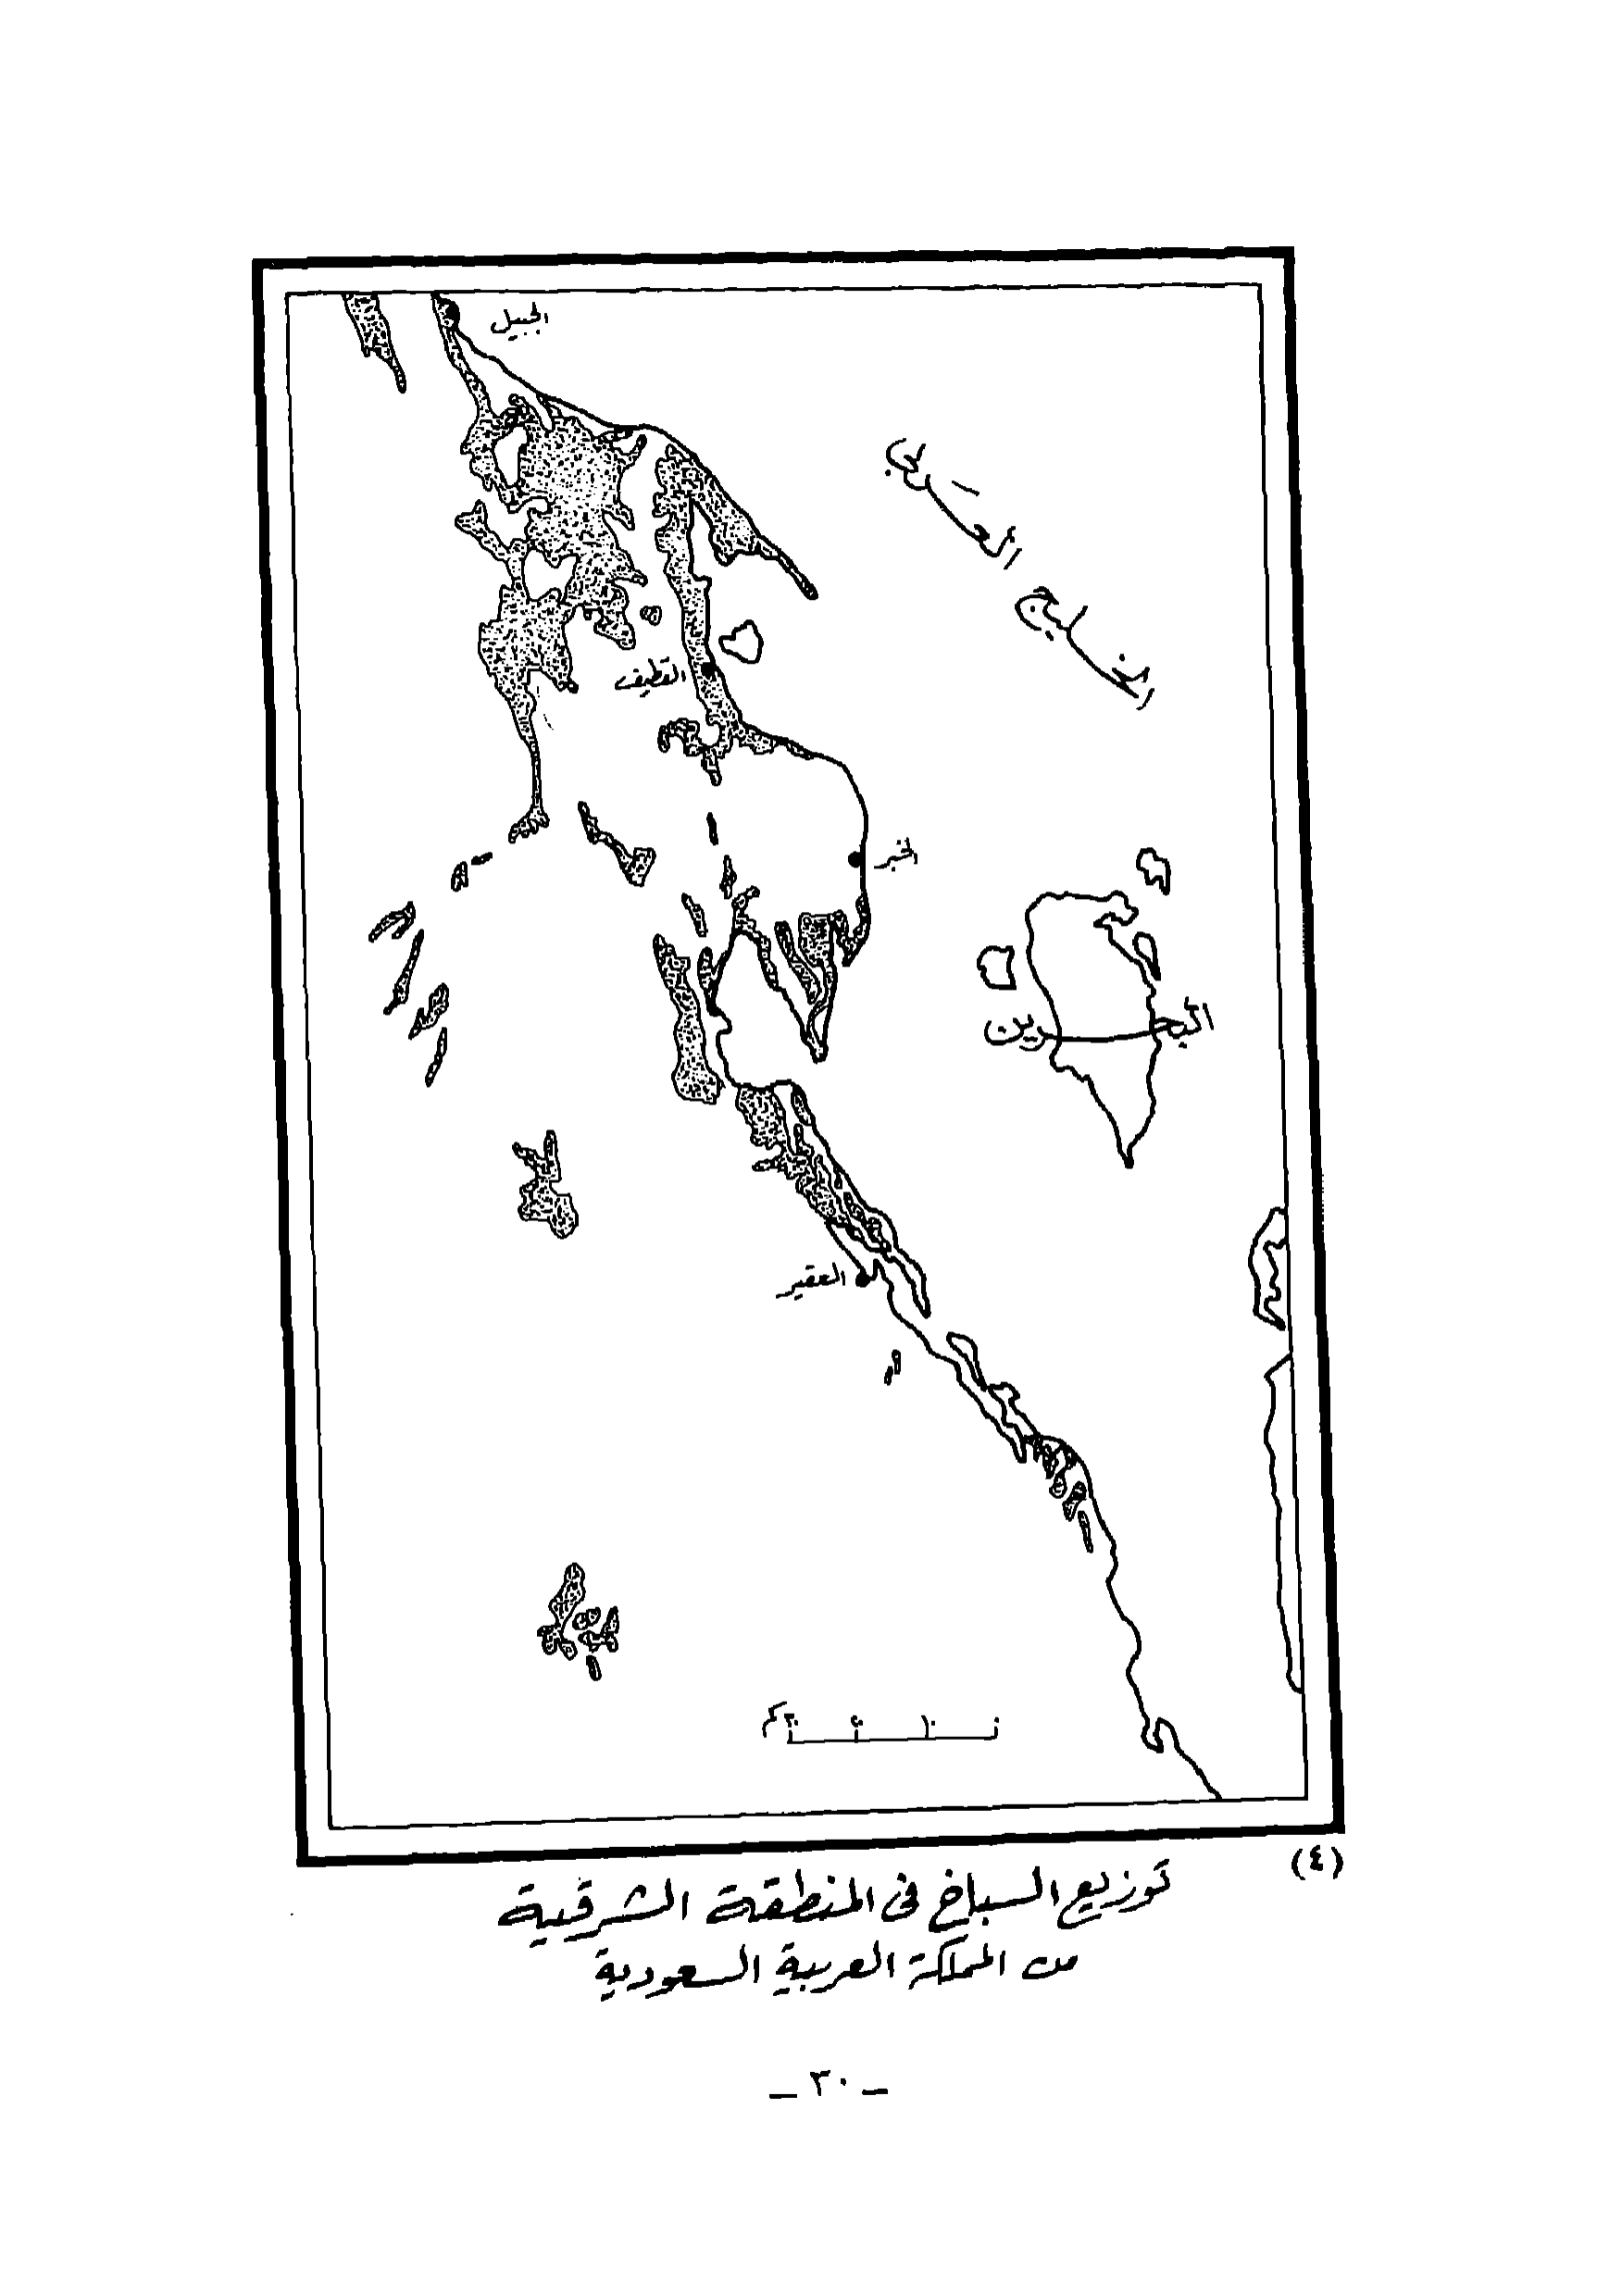 الجبيل
الخليج العربي
القطيف
الخبر
البحرين
العقير
(٤)
توزيع السباخ فى المنطقة الشرقية
من المملكة العربية السعودية
– ٣٠ –